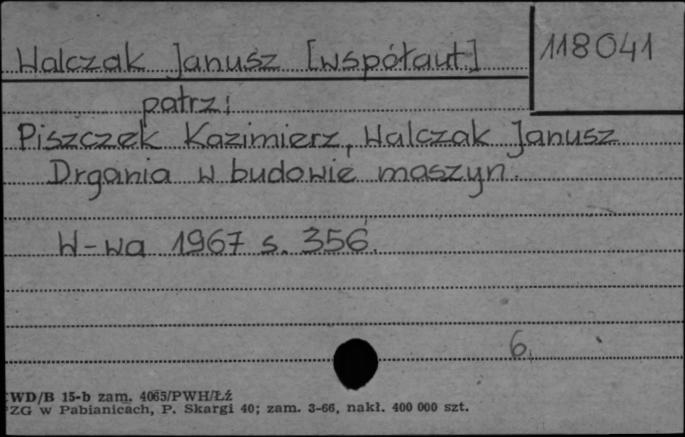 Walczak Janusz [współaut.]
118041
patrz:
Piszczek Kazimierz, Walczak Janusz
Drgania w budowie maszyn.
W-wa 1967 s. 356.
6.
WD/B 15-b zam. 4065/PWH/Łź
ZG w Pabianicach, P. Skargi 40; zam. 3-66, nakł. 400 000 szt.